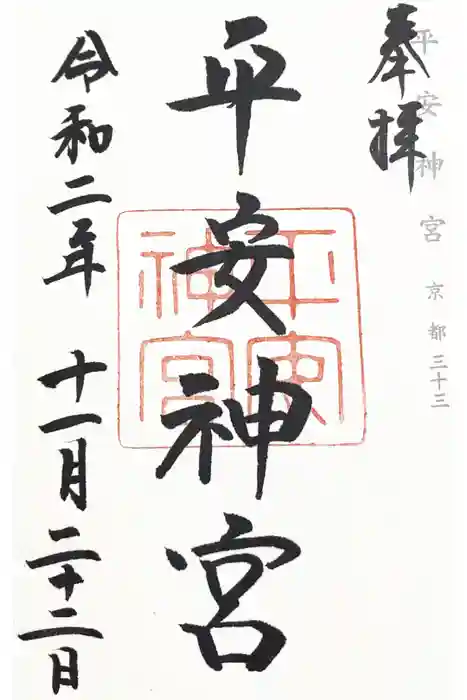 平安神宮 京都三十三
奉拝
平安神宮
平安神宮
令和二年 十一月二十二日